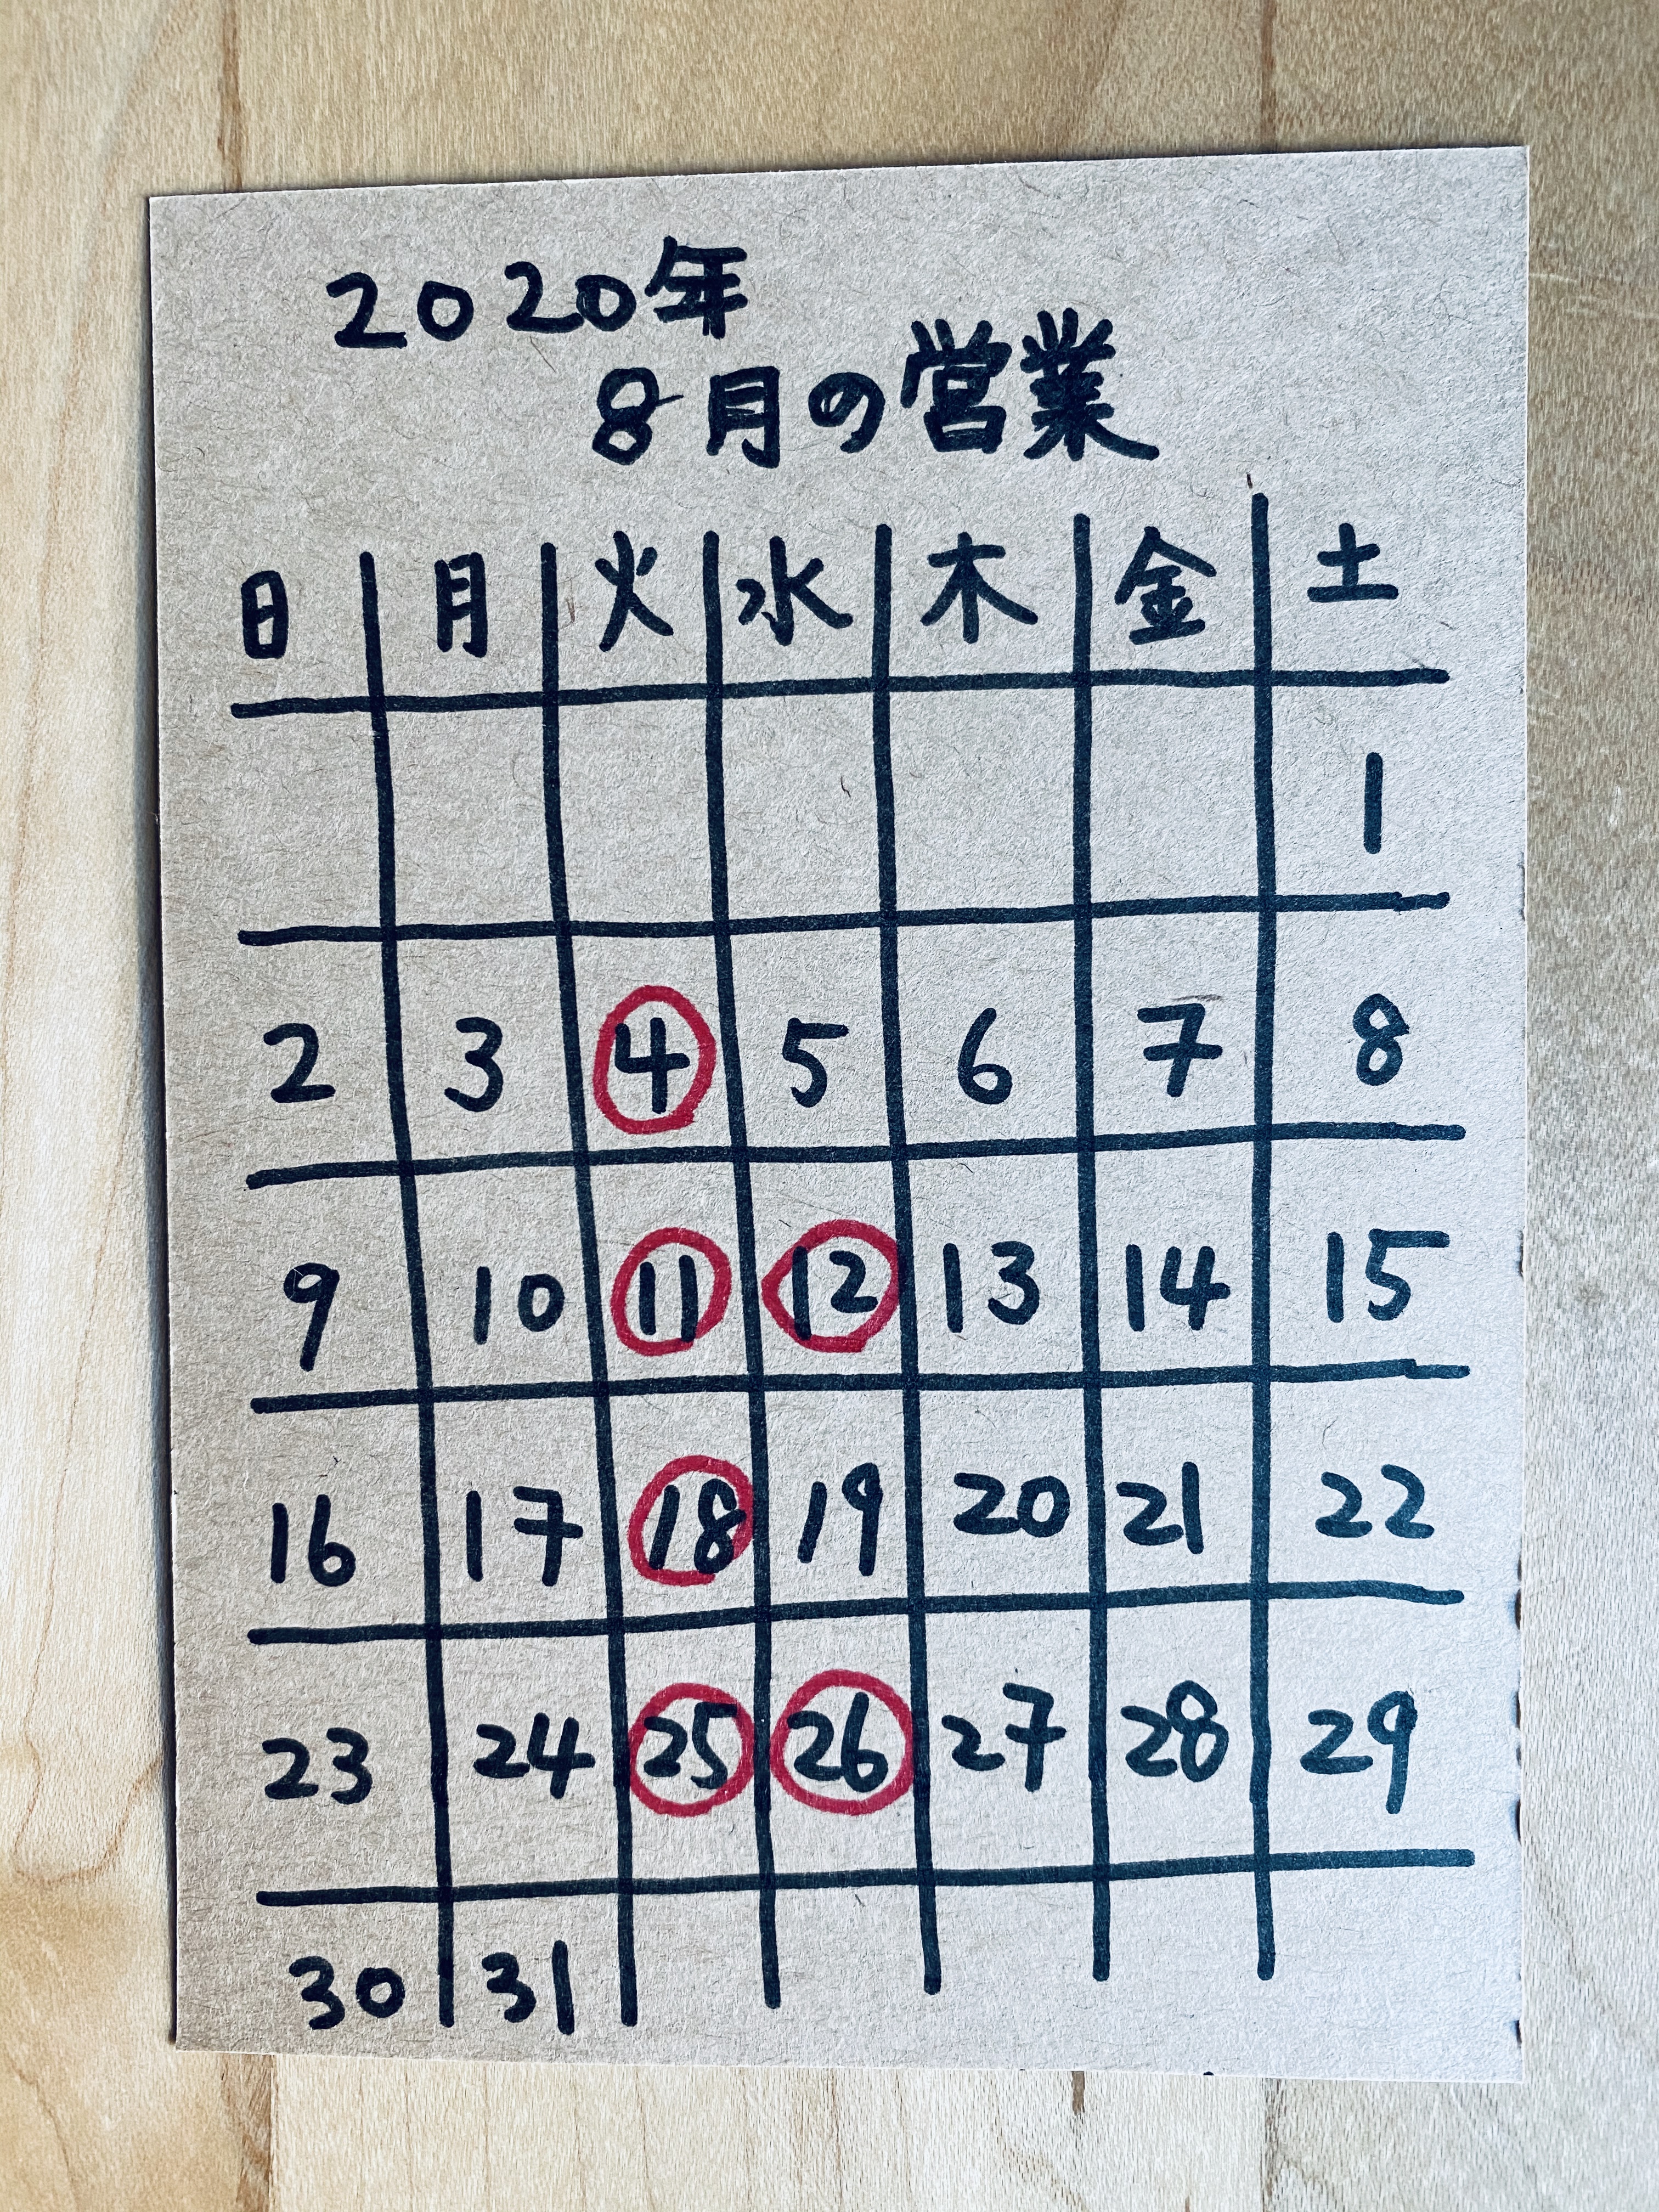 2020年
8月の営業
日 月 火 水 木 金 土
1
2 3 4 5 6 7 8
9 10 11 12 13 14 15
16 17 18 19 20 21 22
23 24 25 26 27 28 29
30 31